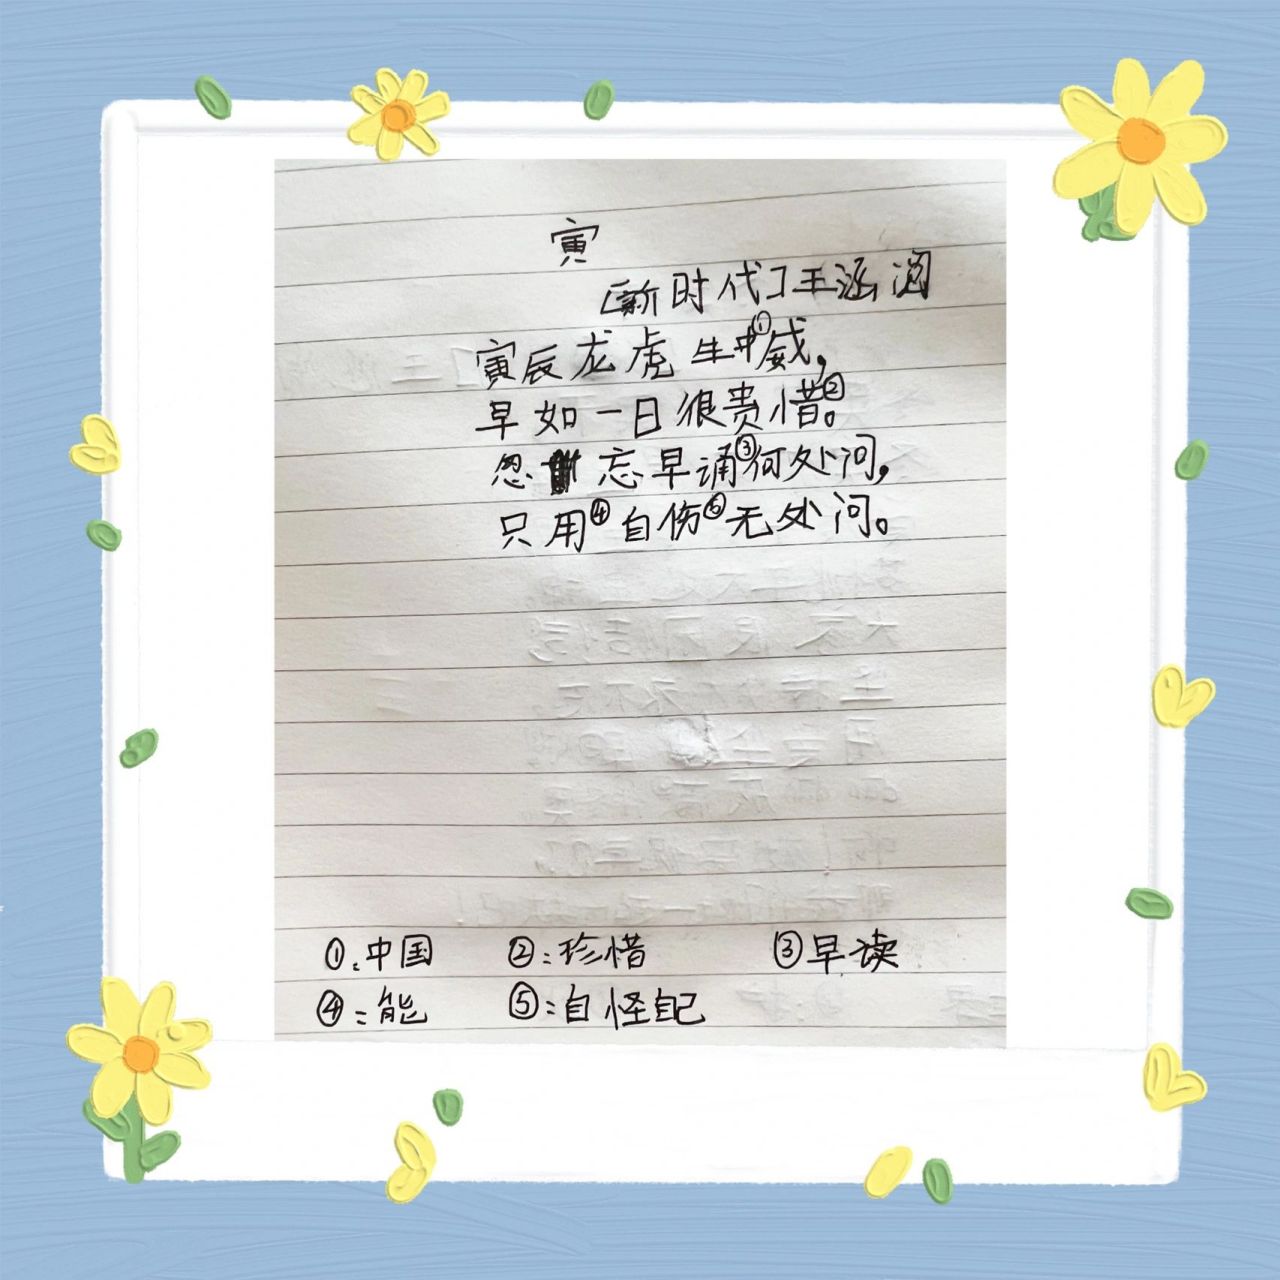 寅
[新时代]王涵涵
寅辰龙虎生中①威,
早如一日很贵惜②。
忽忘早诵③何处问,
只用④自伤⑤无处问。
①:中国 ②:珍惜 ③早读
④:能 ⑤:自怪自己